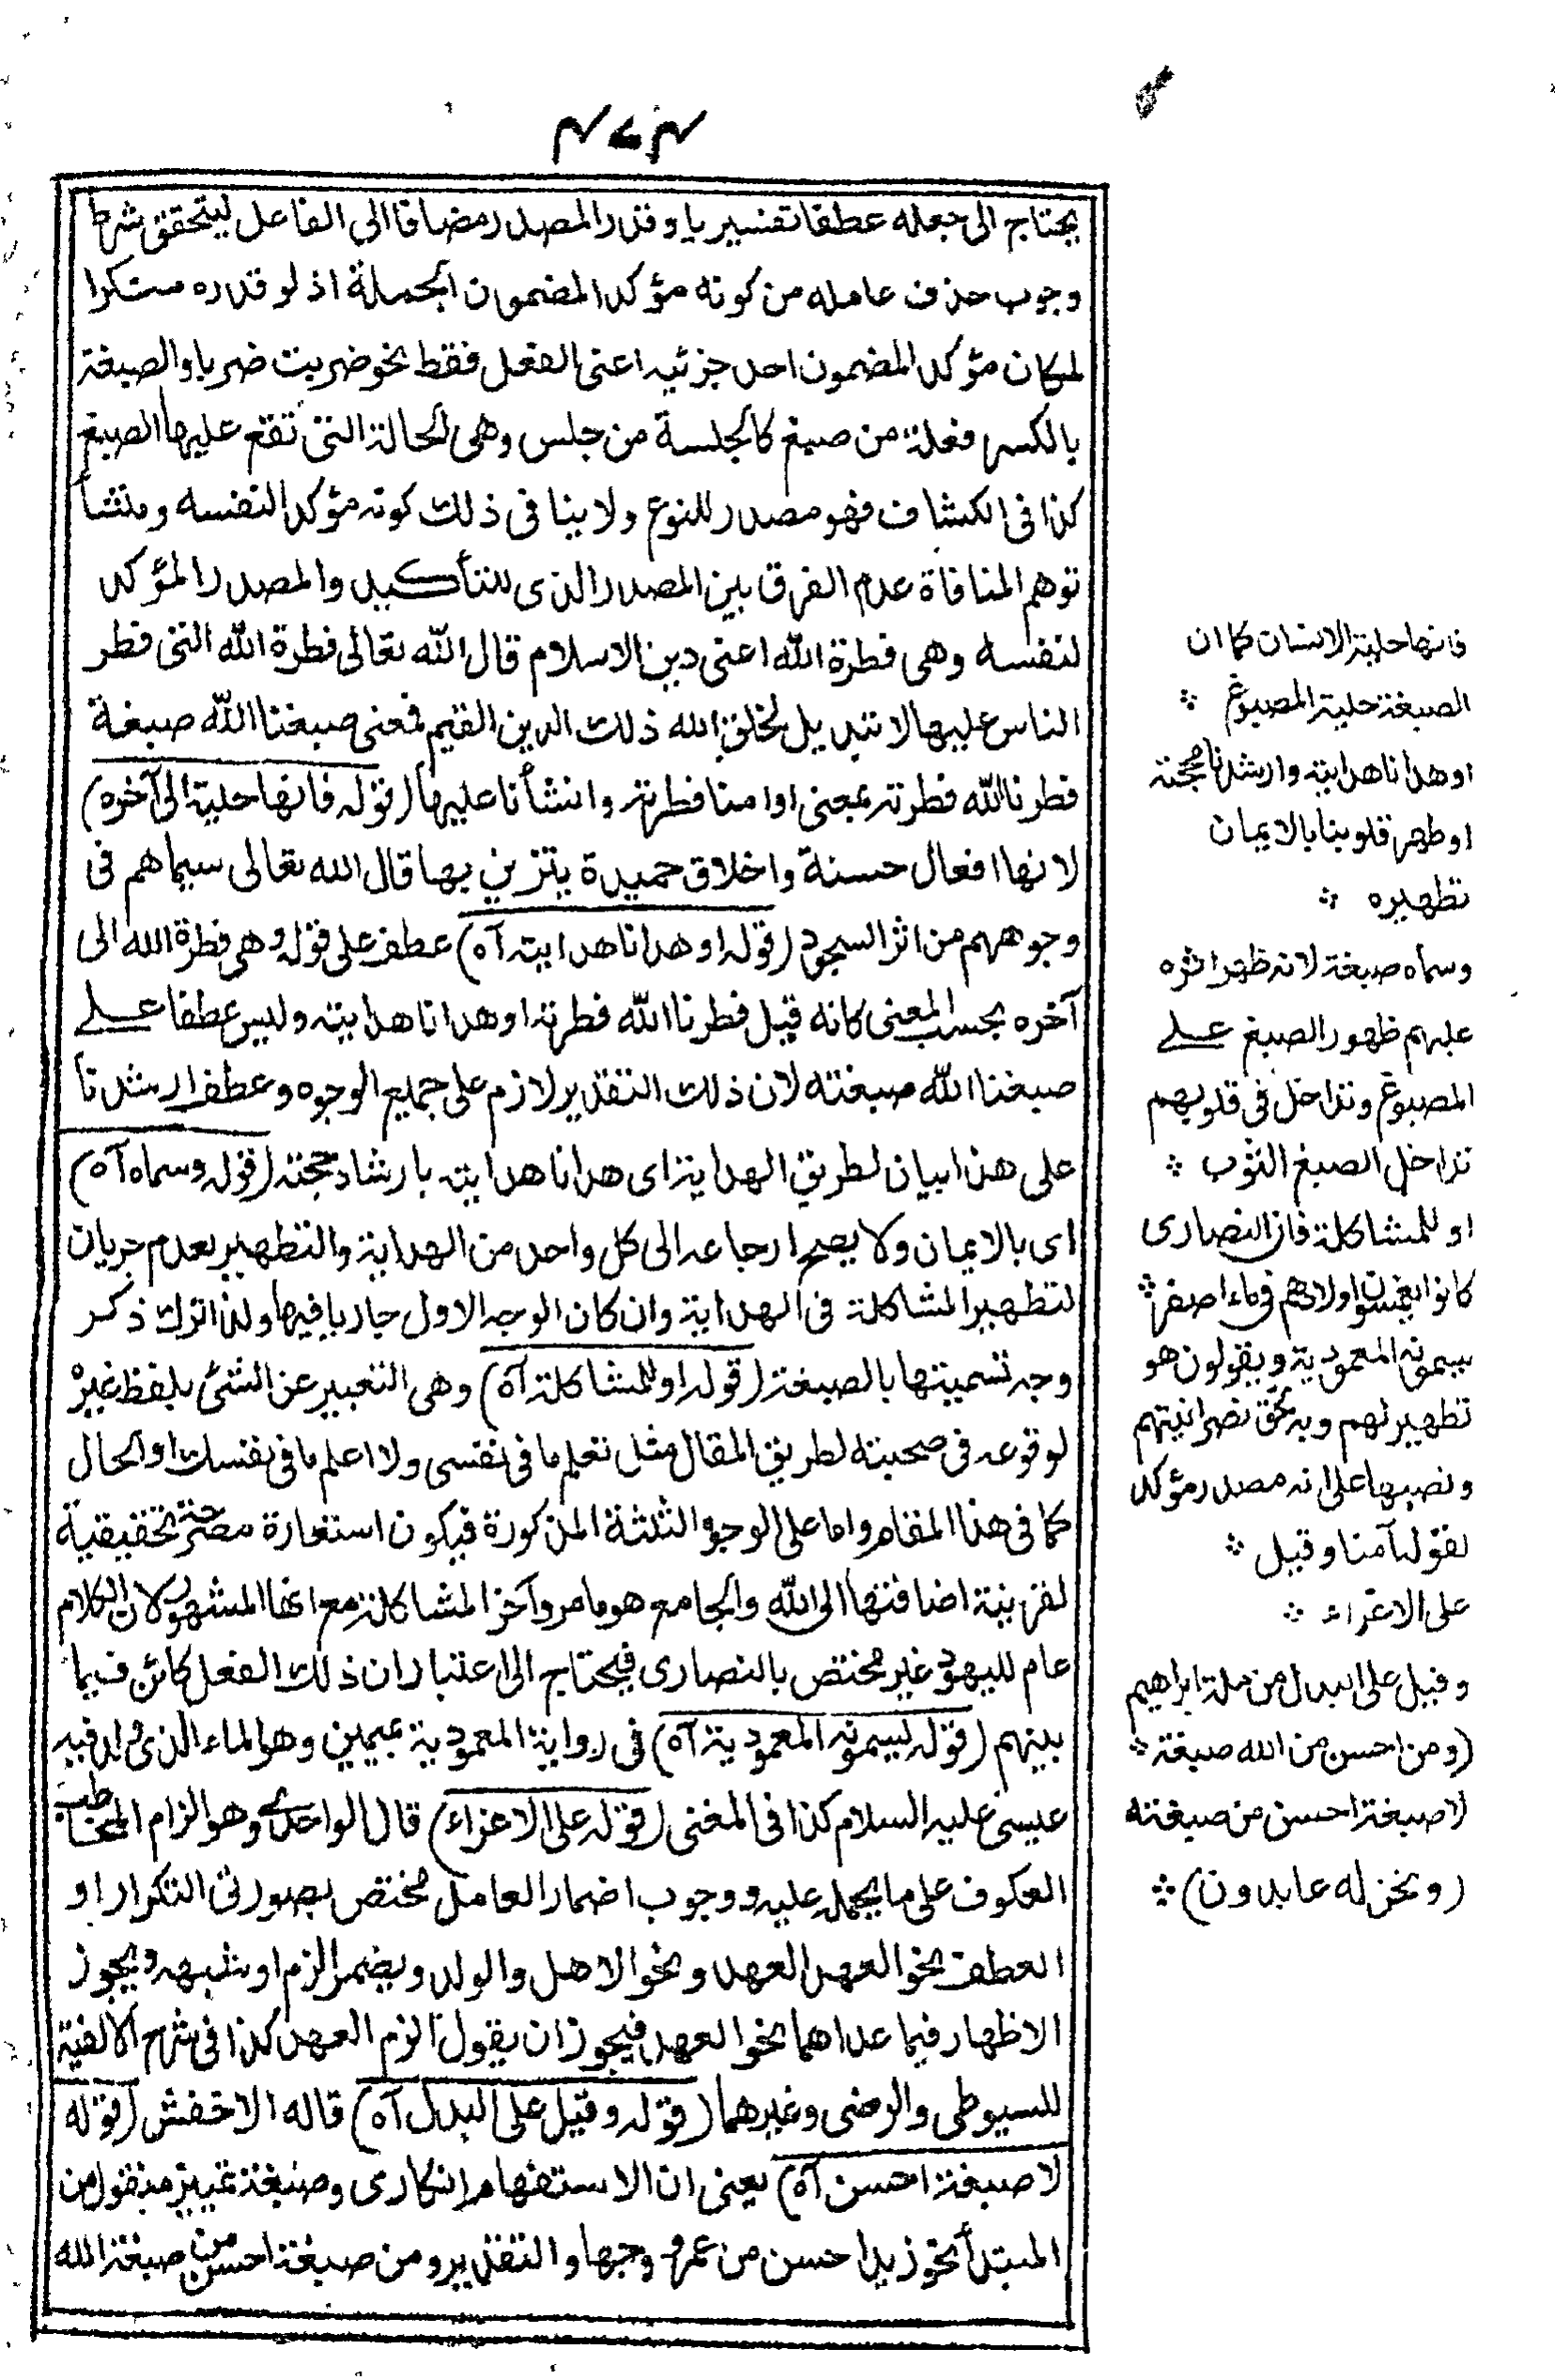 ٤٧٤
يحتاج الى جعله عطفا تفسيريا وقدر المصدر مضافا الى الفاعل ليتحقق شرط
وجوب حذف عامله من كونه مؤكدا لمضمون الجملة اذ لو قدره منكرا
لمكان مؤكدا لمضمون احد جزئيه اعنى الفعل فقط نحو ضربت ضربا والصبغة
بالكسر فعلة من صبغ كالجلسة من جلس وهى الحالة التى تقع عليها الصبغ
كذا فى الكشاف فهو مصدر للنوع ولا ينافى ذلك كونه مؤكدا لنفسه ومنشأ
توهم المنافاة عدم الفرق بين المصدر الذى للتأكيد والمصدر المؤكد
لنفسه وهى فطرة الله اعنى دين الاسلام قال الله تعالى فطرة الله التى فطر
الناس عليها لا تبديل لخلق الله ذلك الدين القيم فمعنى صبغنا الله صبغة
فطرنا الله فطرته بمعنى اوامنا فطرته وانشأنا عليها (قوله فانها حلية الى آخره)
لانها افعال حسنة واخلاق حميدة يتزين بها قال الله تعالى سيماهم فى
وجوههم من اثر السجود (قوله او هدانا هدايته آه) عطف على قوله وهى فطرة الله الى
آخره بحسب المعنى كانه قيل فطرنا الله فطرته او هدانا هدايته وليس عطفا على
صبغنا الله صبغته لان ذلك التقدير لازم على جميع الوجوه وعطف ارشدنا
على هذا بيان لطريق الهداية اى هدانا هدايته بارشاد حجته (قوله وسماه آه)
اى بالايمان ولا يصح ارجاعه الى كل واحد من الهداية والتطهير لعدم جريان
لتطهير المشاكلة فى الهداية وان كان الوجه الاول جاريا فيها ولذا ترك ذكر
وجه تسميتها بالصبغة (قوله او للمشاكلة آه) وهى التعبير عن الشئ بلفظ غيره
لوقوعه فى صحبته لطريق المقال مثل تعلم ما فى نفسى ولا اعلم ما فى نفسك او الحال
كما فى هذا المقام واما على الوجوه الثلثة المذكورة فيكون استعارة مصرحة تحقيقية
لقرينة اضافتها الى الله والجامع هو ما مر وآخر المشاكلة مع انها المشهور لان الكلام
عام لليهود غير مختص بالنصارى فيحتاج الى اعتبار ان ذلك الفعل كائن فيما
بينهم (قوله يسمونه المعمودية آه) فى رواية المعمودية بميمين وهو الماء الذى ولد فيه
عيسى عليه السلام كذا فى المغنى (قوله على الاغراء) قال الواحدى وهو الزام المخاطب
العكوف على ما يحمله عليه ووجوب اضمار العامل مختص بصورتى التكرار او
العطف نحو العهد العهد ونحو الاهل والولد ويضمر الزم او شبهه ويجوز
الاظهار فيما عداهما نحو العهد فيجوز ان يقول الزم العهد كذا فى شرح الالفية
للسيوطى والرضى وغيرهما (قوله وقيل على البدل آه) قاله الاخفش (قوله
لا صبغة احسن آه) يعنى ان الاستفهام انكارى وصبغة تمييز منقول من
المبتدأ نحو زيد احسن من عمرو وجها والتقدير ومن صبغة احسن من صبغة الله
فانها حلية الانسان كما ان
الصبغة حلية المصبوغ ⁘
او هدانا هدايته وارشدنا حجته
او طهر قلوبنا بالايمان
تطهيره ⁘
وسماه صبغة لانه ظهر اثره
عليهم ظهور الصبغ على
المصبوغ وتداخل فى قلوبهم
تداخل الصبغ الثوب ⁘
او للمشاكلة فان النصارى
كانوا يغمسون اولادهم فى ماء اصفر ⁘
يسمونه المعمودية ويقولون هو
تطهير لهم وبه يحق نصرانيتهم
ونصبها على انه مصدر مؤكد
لقوله آمنا وقيل ⁘
على الاغراء ⁘
وقيل على البدل من ملة ابراهيم
(ومن احسن من الله صبغة ⁘
لا صبغة احسن من صبغته
(ونحن له عابدون) ⁘